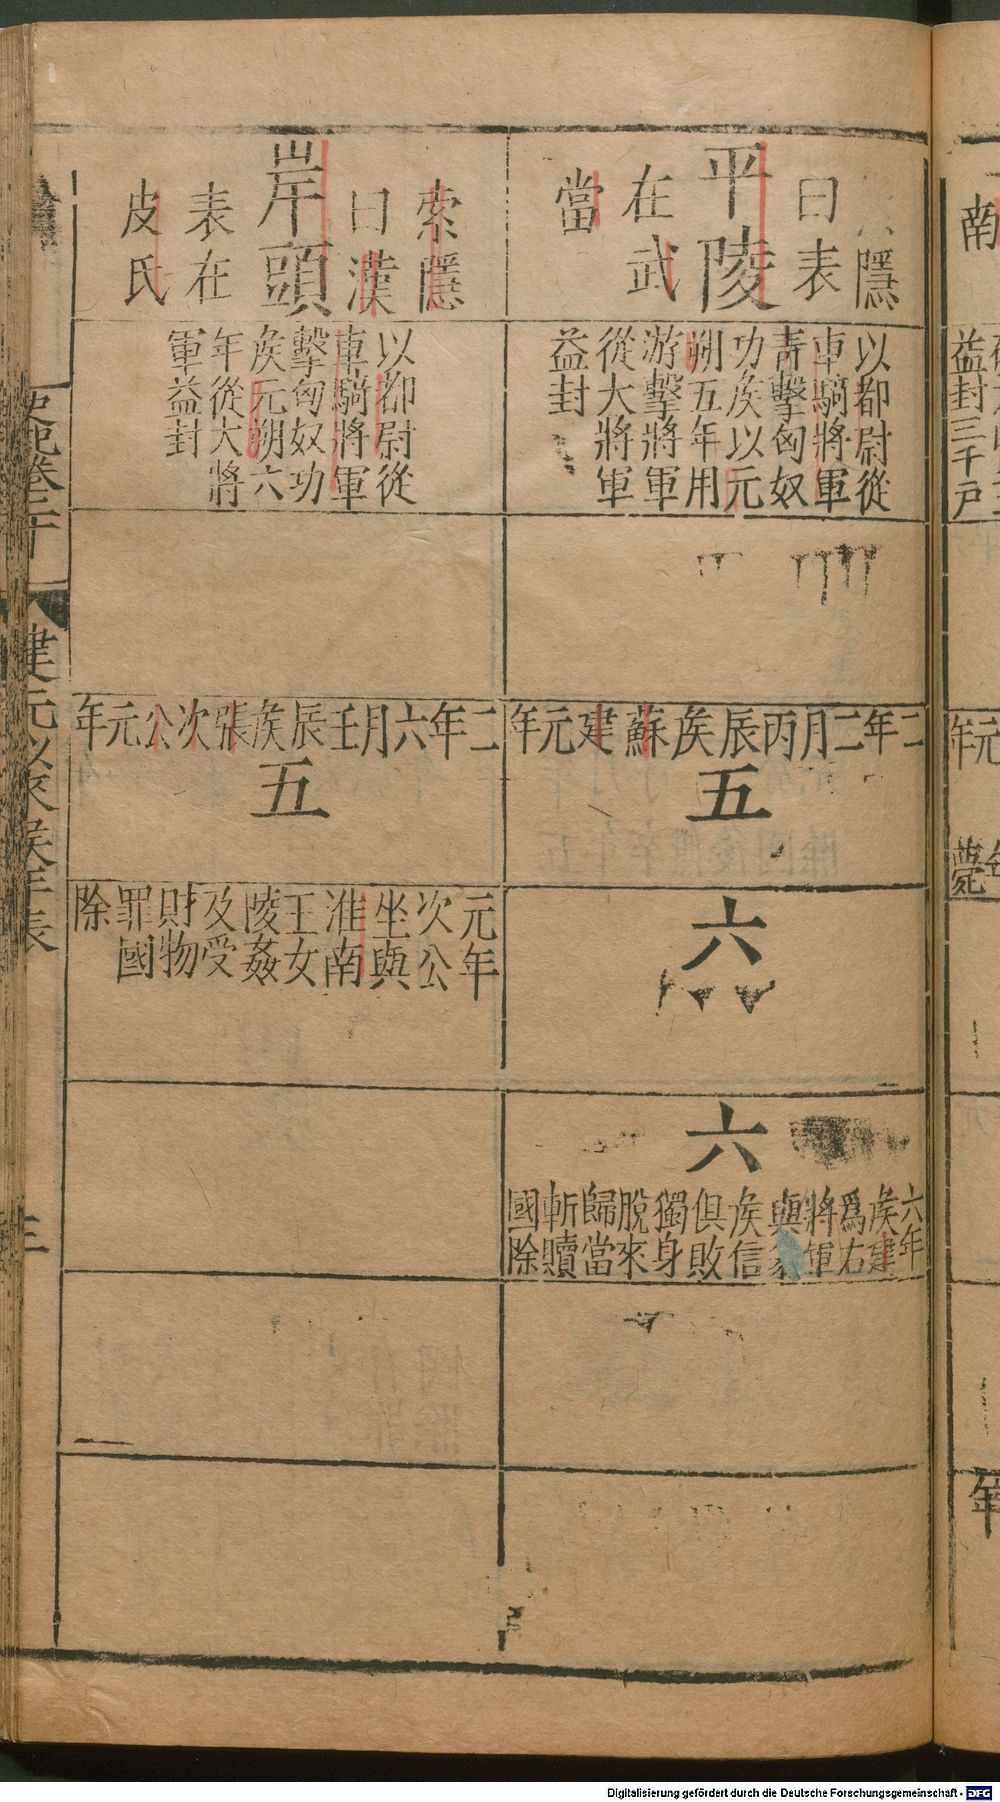 南
益封三千戶
元年
薨
年
隱
曰表
平陵
在武
當
以都尉從
車騎將軍
青擊匈奴
功矦以元
朔五年用
游擊將軍
從大將軍
益封
二年二月丙辰矦蘇建元年
五
六
六
六年
矦建
爲右
將軍
與翕
矦信
俱敗
獨身
脫來
歸當
斬贖
國除
索隱
曰漢
岸頭
表在
皮氏
以都尉從
車騎將軍
擊匈奴功
矦元朔六
年從大將
軍益封
二年六月壬辰矦張次公元年
五
元年
次公
坐與
淮南
王女
陵姦
及受
財物
罪國
除
史記卷二十
建元以來侯年表
Digitalisierung gefördert durch die Deutsche Forschungsgemeinschaft - DFG